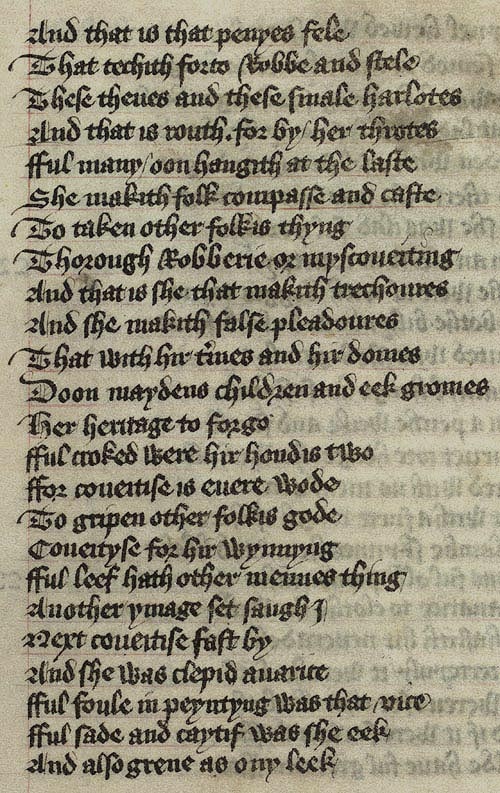 And that is that penyes fele
That techith forto Robbe and stele
These theues and these smale harlotes
And that is routh. for by / her throtes
fful many / oon hangith at the laste
She makith folk compasse and caste
To taken other folkis thyng
Thorough Robberie or myscoueiting
And that is she that makith trechoures
And she makith false pleadoures
That with hir t'mes and hir domes
Doon maydens children and eek gromes
Her heritage to forgo
fful croked were hir hondis two
ffor coueitise is euere wode
To gripen other folkis gode
Coueityse for hir wynnyng
fful leef hath other mennes thing
Another ymage set saugh I
Next coueitise fast by
And she was clepid auarice
fful foule in peyntyng was that vice
fful sade and caytif was she eek
And also grene as ony leek